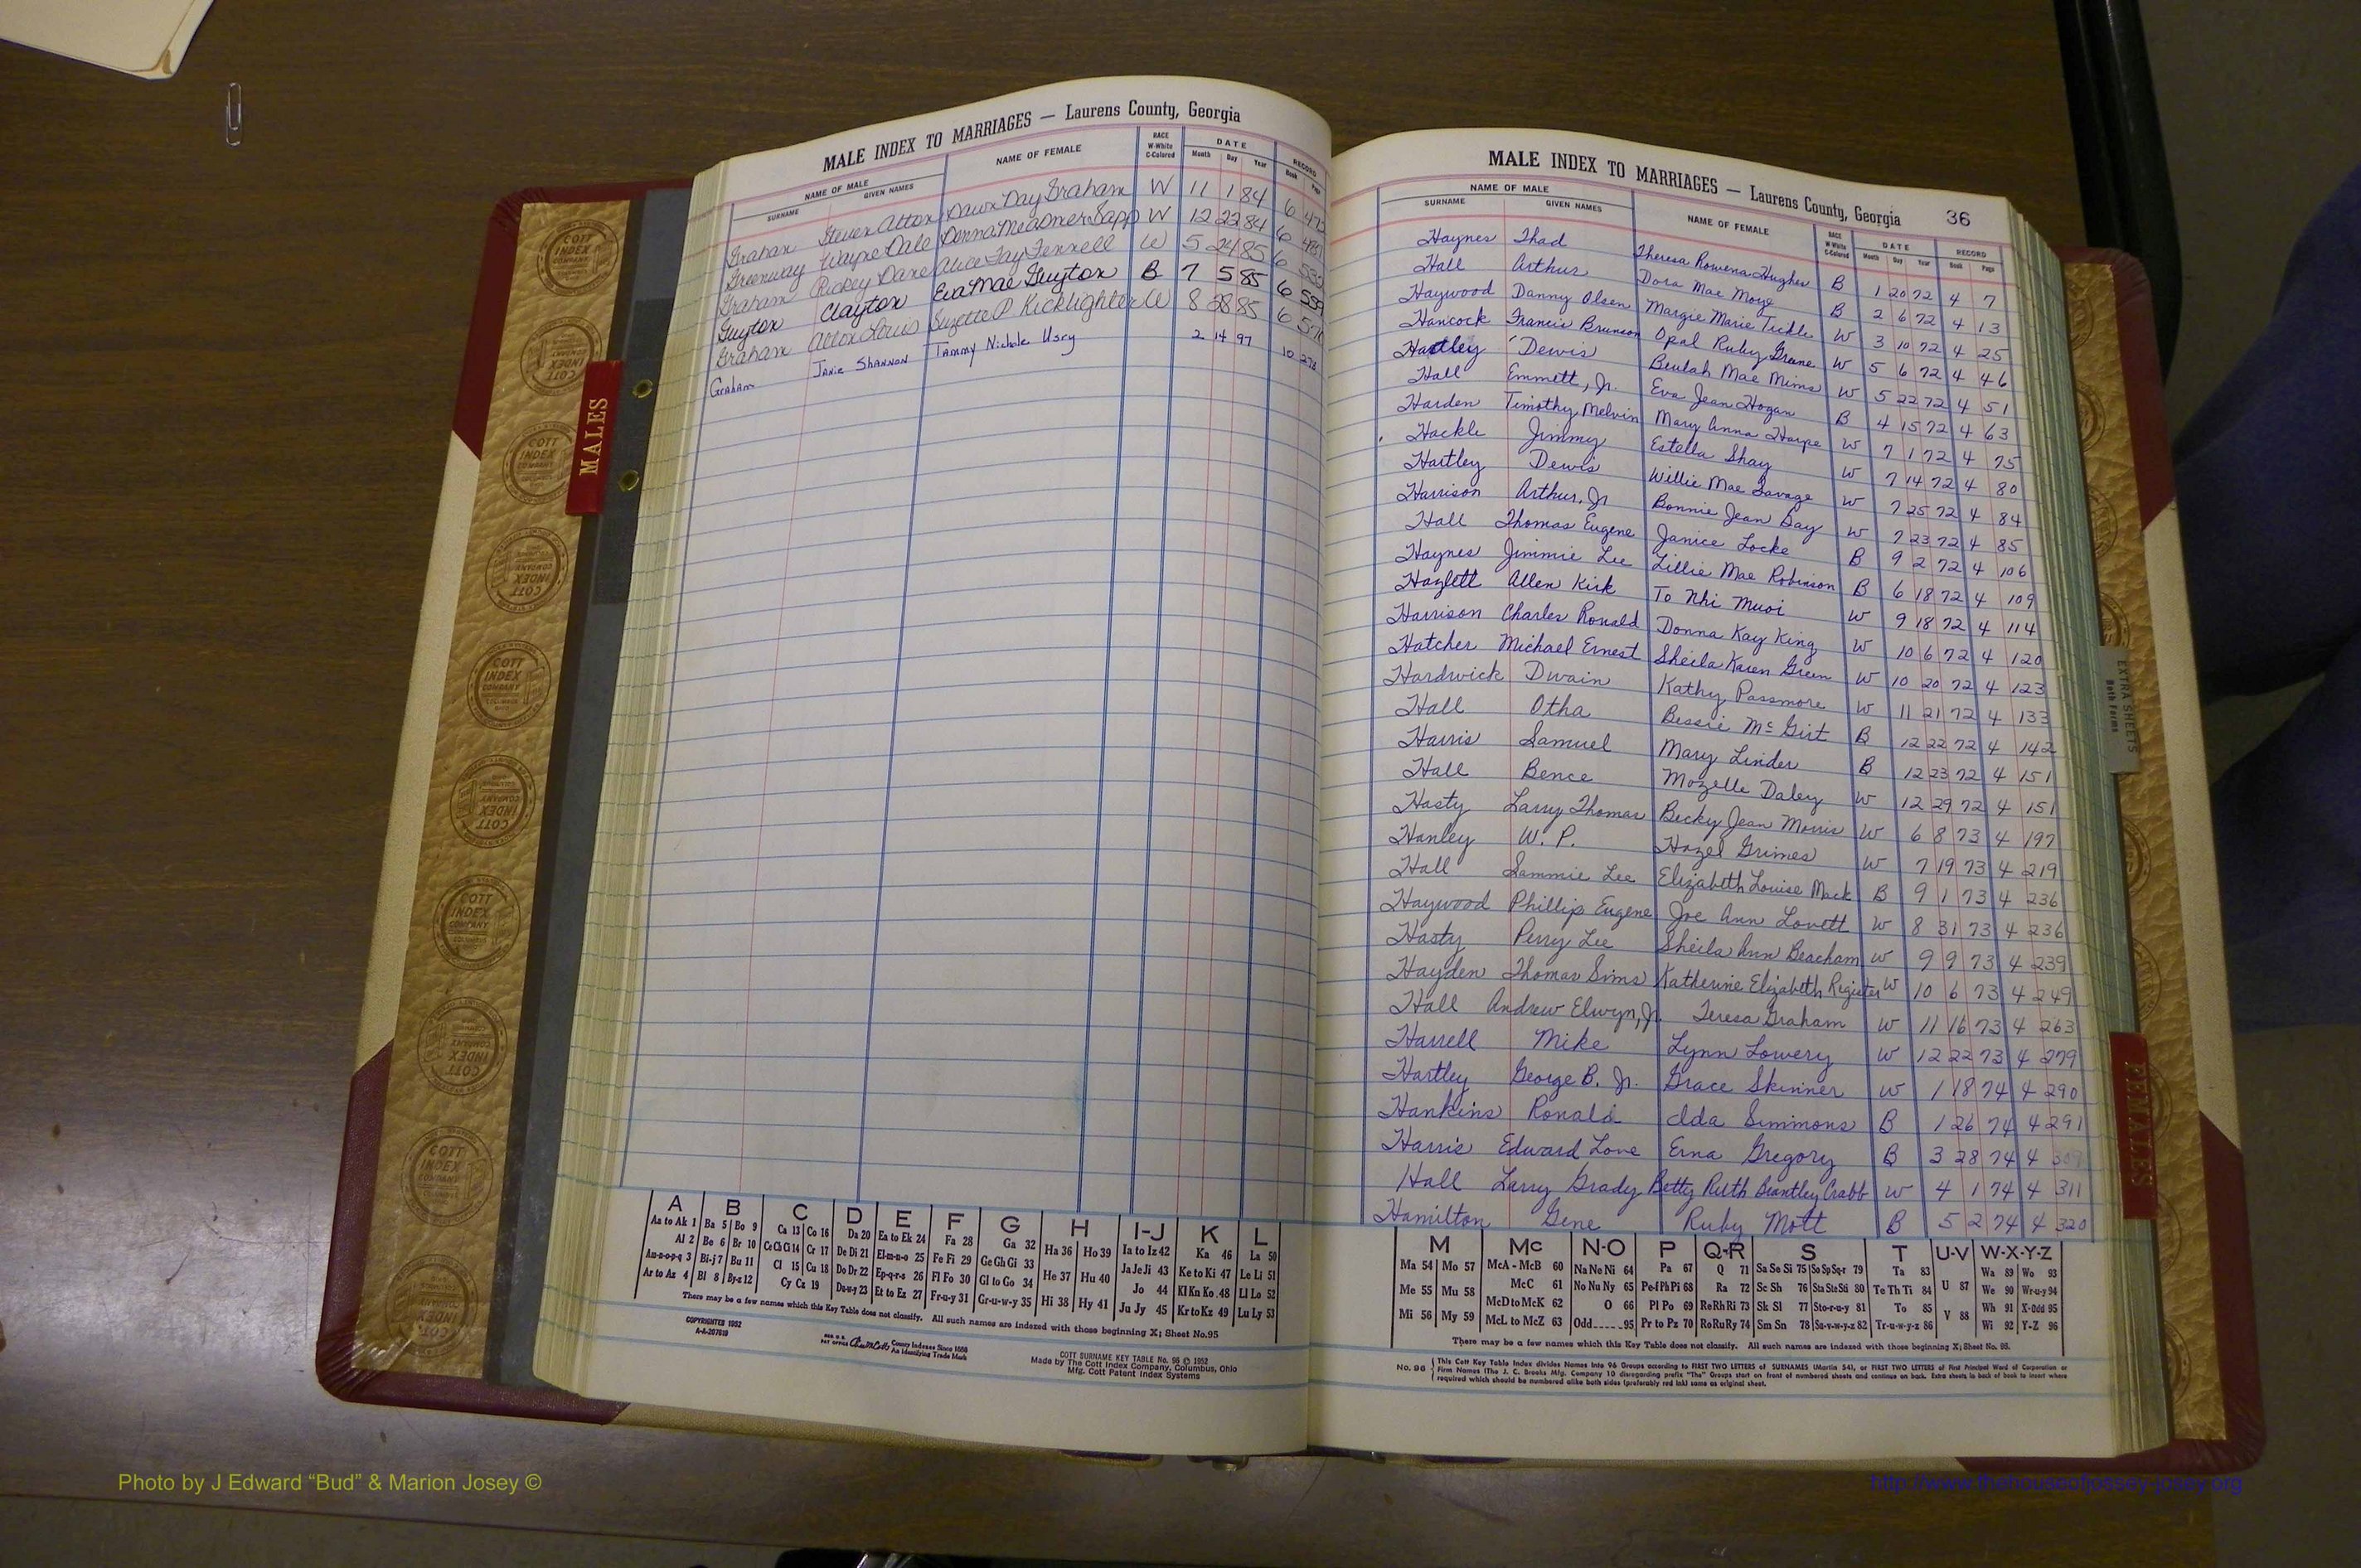 MALE INDEX TO MARRIAGES — Laurens County, Georgia
NAME OF MALE NAME OF FEMALE RACE DATE RECORD
SURNAME GIVEN NAMES W-White C-Colored Month Day Year Book Page
Graham Steven Alton Dawn Day Graham W 11 1 84 6 472
Greenway Wayne Dale Donna Meadows Sapp W 12 22 84 6
Graham Rickey Dane Alice Fay Fennell W 5 24 85 6
Guyton Clayton Eva Mae Guyton B 7 5 85 6 559
Graham Alton Louis Suzette P Kicklighter W 8 85 6
Graham Janie Shannon Tammy Nichole Usry 2 14 97 10 276
MALES
A B C D E F G H I-J K L
Aa to Ak 1 Ba 5 Bo 9 Ca 13 Co 16 Da 20 Ea to Ek 24 Fa 28 Ga 32 Ha 36 Ho 39 Ia to Iz 42 Ka 46 La 50
Al 2 Be 6 Br 10 Ce Ch Ci 14 Cr 17 De Di 21 El-m-n-o 25 Fe Fi 29 Ge Gh Gi 33 He 37 Hu 40 Ja Je Ji 43 Ke to Ki 47 Le Li 51
Am-n-o-p-q 3 Bi-j 7 Bu 11 Cl 15 Cu 18 Do Dr 22 Ep-q-r-s 26 Fl Fo 30 Gl to Go 34 Hi 38 Hy 41 Jo 44 Kl Kn Ko 48 Ll Lo 52
Ar to Az 4 Bl 8 By-z 12 Cy Cz 19 Du-w-y 23 Et to Ez 27 Fr-u-y 31 Gr-u-w-y 35 Ju Jy 45 Kr to Kz 49 Lu Ly 53
There may be a few names which this Key Table does not classify. All such names are indexed with those beginning X; Sheet No.95
COPYRIGHTED 1952
A-A-207619
County Indexes Since 1888
An Identifying Trade Mark
COTT SURNAME KEY TABLE No. 96 © 1952
Made by The Cott Index Company, Columbus, Ohio
Mfg. Cott Patent Index Systems
MALE INDEX TO MARRIAGES — Laurens County, Georgia 36
NAME OF MALE NAME OF FEMALE RACE DATE RECORD
SURNAME GIVEN NAMES W-White C-Colored Month Day Year Book Page
Haynes Thad Theresa Rowena Hughes B 1 20 72 4 7
Hall Arthur Dora Mae Moye B 2 6 72 4 13
Haywood Danny Olsen Margie Marie Tickle W 3 10 72 4 25
Hancock Francis Brunson Opal Ruby Greene W 5 6 72 4 46
Hartley Dewis Beulah Mae Mims W 5 22 72 4 51
Hall Emmett, Jr. Eva Jean Hogan B 4 15 72 4 63
Harden Timothy Melvin Mary Anna Harpe W 7 1 72 4 75
Hackle Jimmy Estella Shay W 7 14 72 4 80
Hartley Dewis Willie Mae Savage W 7 25 72 4 84
Harrison Arthur, Jr Bonnie Jean Day W 7 23 72 4 85
Hall Thomas Eugene Janice Locke B 9 2 72 4 106
Haynes Jimmie Lee Lillie Mae Robinson B 6 18 72 4 109
Hazlett Allen Kirk To Nhi Muoi W 9 18 72 4 114
Harrison Charles Ronald Donna Kay King W 10 6 72 4 120
Hatcher Michael Ernest Sheila Karen Green W 10 20 72 4 123
Hardwick Dwain Kathy Passmore W 11 21 72 4 133
Hall Otha Bessie McGirt B 12 22 72 4 142
Harris Samuel Mary Linder B 12 23 72 4 151
Hall Bence Mozelle Daley W 12 29 72 4 151
Hasty Larry Thomas Becky Jean Morris W 6 8 73 4 197
Hanley W. P. Hazel Grimes W 7 19 73 4 219
Hall Sammie Lee Elizabeth Louise Mack B 9 1 73 4 236
Haywood Phillip Eugene Joe Ann Lovett W 8 31 73 4 236
Hasty Perry Lee Sheila Ann Beacham W 9 9 73 4 239
Hayden Thomas Sims Katherine Elizabeth Register W 10 6 73 4 249
Hall Andrew Elwyn, Jr. Teresa Graham W 11 16 73 4 263
Harrell Mike Lynn Lowery W 12 22 73 4 279
Hartley George B. Jr. Grace Skinner W 1 18 74 4 290
Hankins Ronald Ida Simmons B 1 26 74 4 291
Harris Edward Love Erna Gregory B 3 28 74 4
Hall Larry Grady Betty Ruth Brantley Crabb W 4 1 74 4 311
Hamilton Gene Ruby Mott B 5 2 74 4 320
M Mc N-O P Q-R S T U-V W-X-Y-Z
Ma 54 Mo 57 McA - McB 60 Na Ne Ni 64 Pa 67 Q 71 Sa Se Si 75 So Sp Sq-r 79 Ta 83 U 87 Wa 89 Wo 93
Me 55 Mu 58 McC 61 No Nu Ny 65 Pe-f Ph Pi 68 Ra 72 Sc Sh 76 Sta Ste Sti 80 Te Th Ti 84 We 90 Wr-u-y 94
Mi 56 My 59 McD to McK 62 O 66 Pl Po 69 Re Rh Ri 73 Sk Sl 77 Sto-r-u-y 81 To 85 V 88 Wh 91 X-Odd 95
McL to McZ 63 Odd 95 Pr to Pz 70 Ro Ru Ry 74 Sm Sn 78 Su-v-w-y-z 82 Tr-u-w-y-z 86 Wi 92 Y-Z 96
There may be a few names which this Key Table does not classify. All such names are indexed with those beginning X; Sheet No. 95.
No. 96 This Cott Key Table Index divides Names into 96 Groups according to FIRST TWO LETTERS of SURNAMES (Martin 54), or FIRST TWO LETTERS of First Principal Word of Corporation or
Firm Names (The J. C. Brooks Mfg. Company 10 disregarding prefix "The" Groups start on front of numbered sheets and continue on back. Extra sheets in back of book to insert where
required which should be numbered alike both sides (preferably red ink) same as original sheet.
EXTRA SHEETS
Both Forms
FEMALES
COTT INDEX COMPANY
Photo by J Edward “Bud” & Marion Josey ©
http://www.thehouseofjossey-josey.org